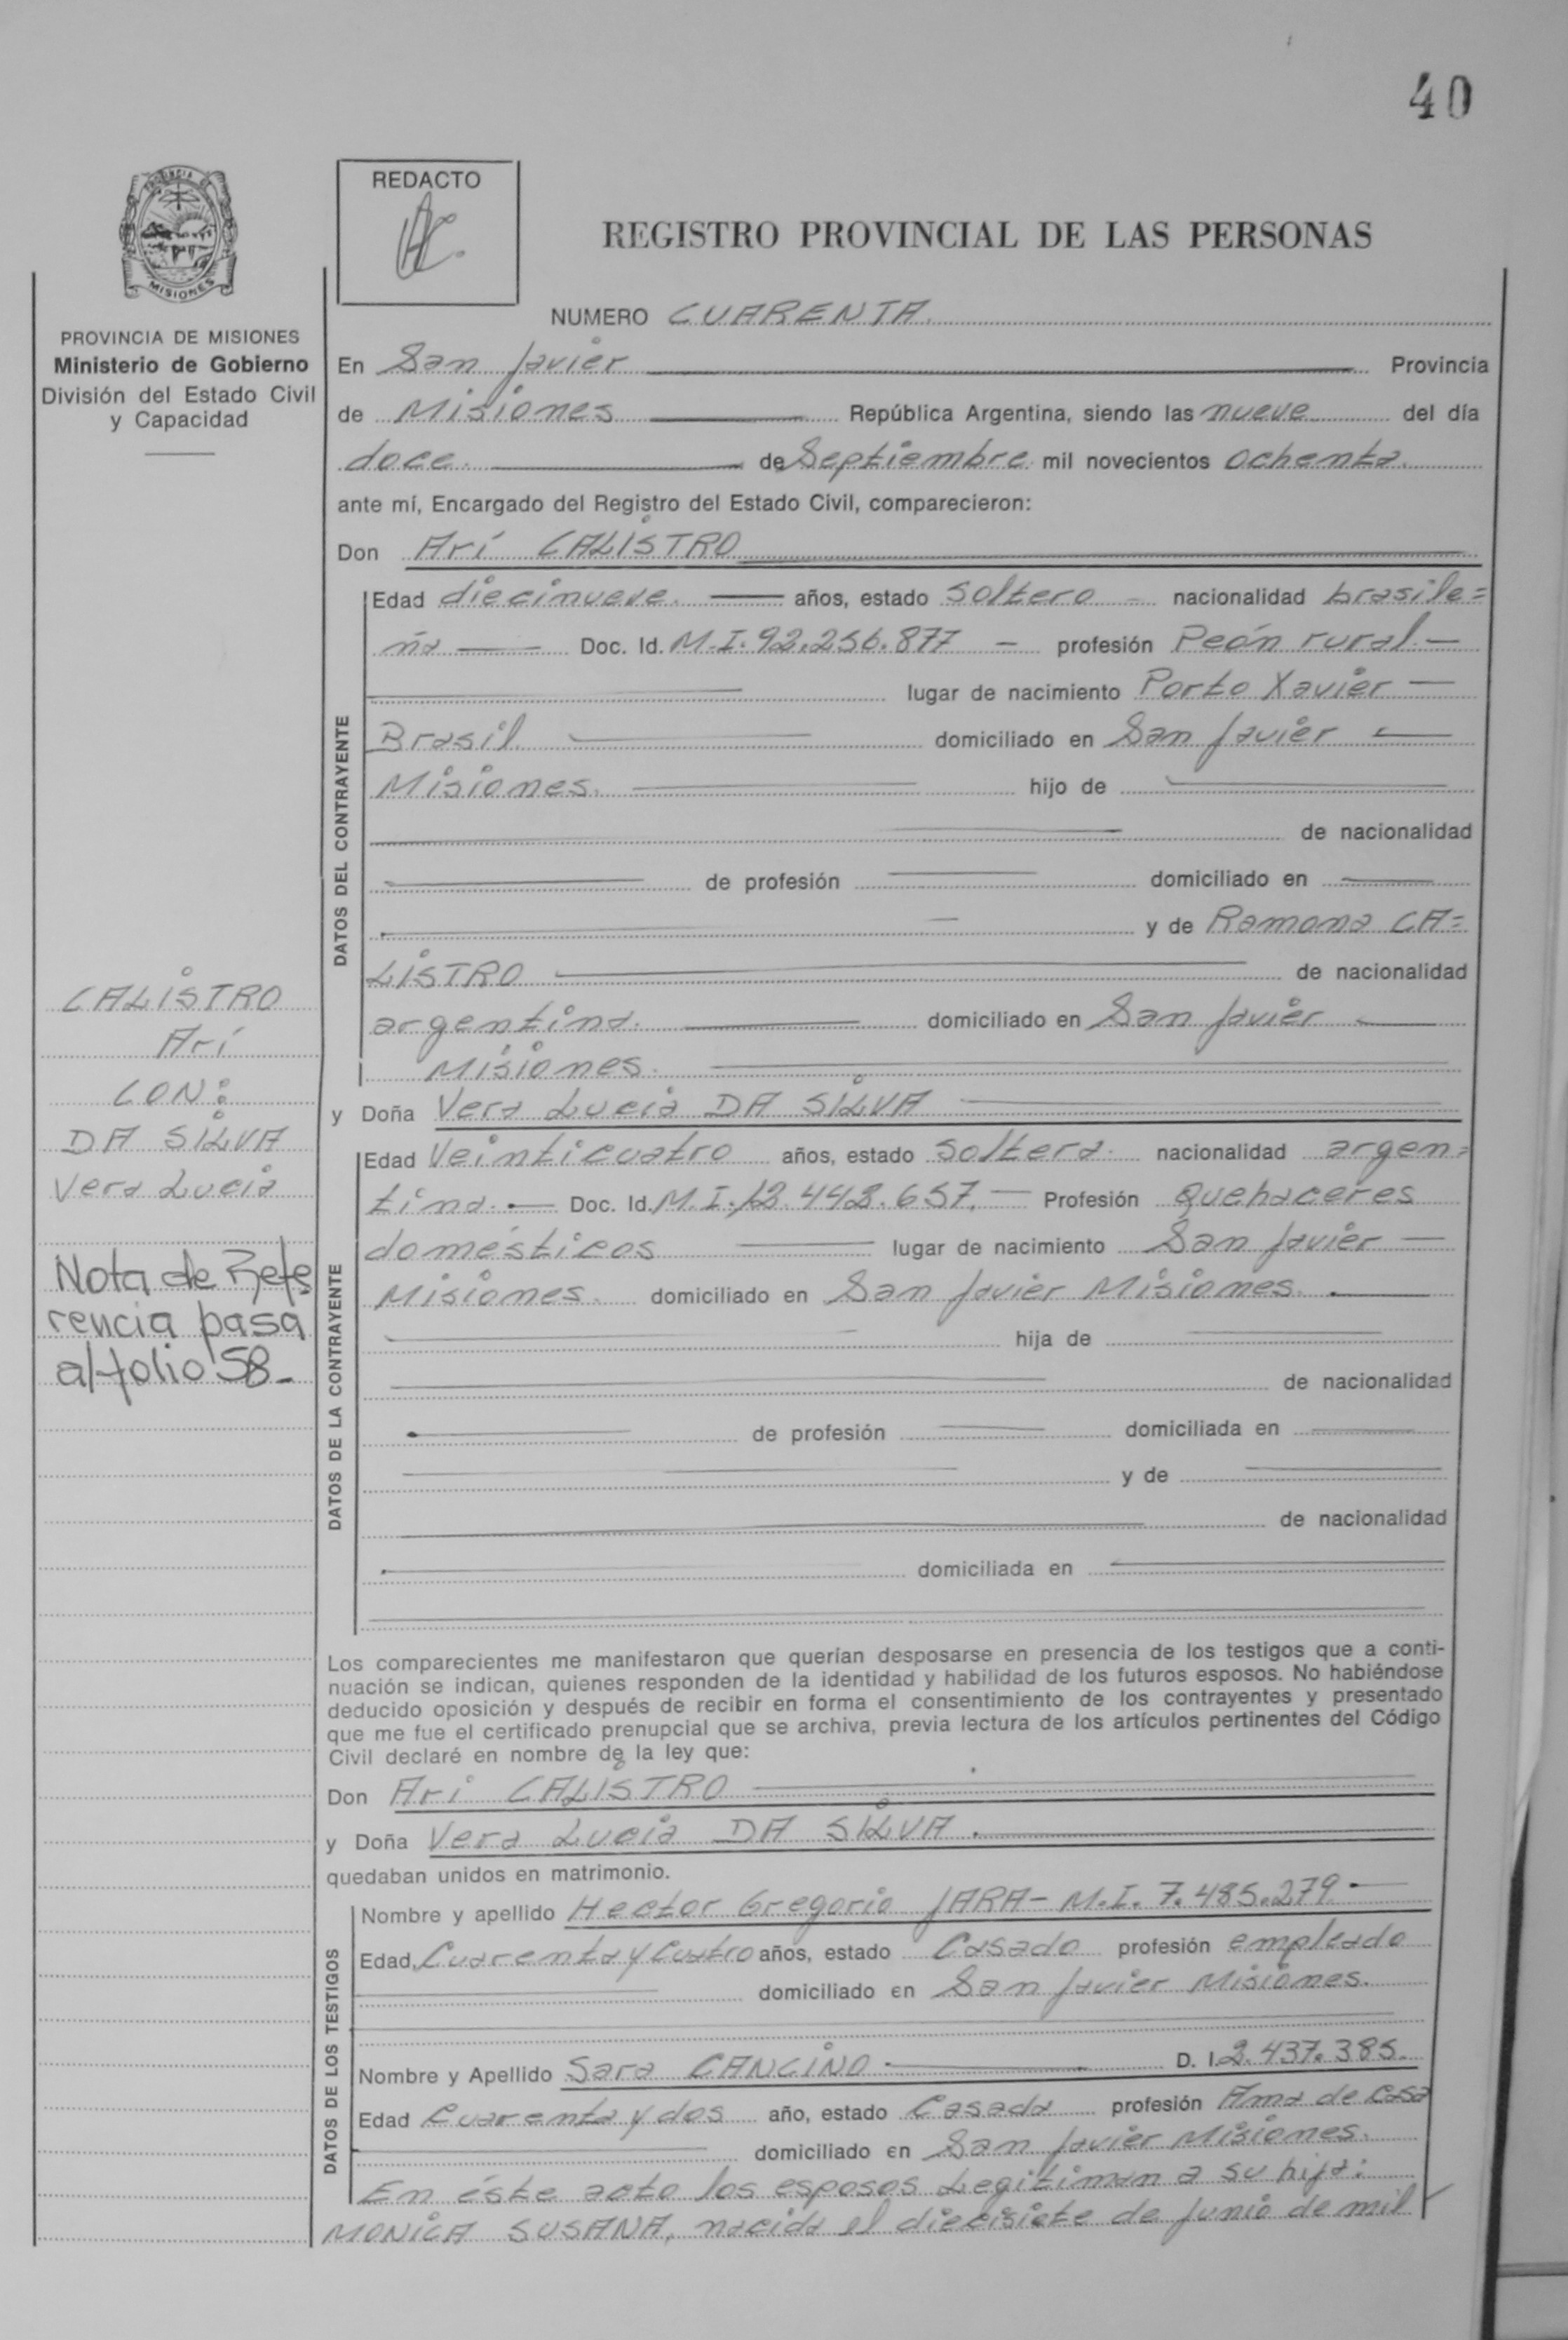 40
PROVINCIA DE
MISIONES
PROVINCIA DE MISIONES
Ministerio de Gobierno
División del Estado Civil
y Capacidad
REDACTO
REGISTRO PROVINCIAL DE LAS PERSONAS
NUMERO CUARENTA
En San Javier Provincia
de Misiones República Argentina, siendo las nueve del día
doce de Septiembre mil novecientos ochenta
ante mí, Encargado del Registro del Estado Civil, comparecieron:
Don Arí CALISTRO
DATOS DEL CONTRAYENTE
Edad diecinueve. años, estado Soltero nacionalidad brasile=
ña Doc. Id. M.I. 92.256.877 profesión Peón rural
lugar de nacimiento Porto Xavier
Brasil domiciliado en San Javier
Misiones. hijo de
de nacionalidad
de profesión domiciliado en
y de Ramona CA=
LISTRO de nacionalidad
argentina. domiciliado en San Javier
Misiones.
y Doña Vera Lucia DA SILVA
CALISTRO
Arí
CON:
DA SILVA
Vera Lucia
Nota de Refe
rencia pasa
al folio 58_
DATOS DE LA CONTRAYENTE
Edad Veinticuatro años, estado Soltera. nacionalidad argen=
tina. Doc. Id. M.I. 12.442.657. Profesión Quehaceres
domésticos lugar de nacimiento San Javier
Misiones. domiciliado en San Javier Misiones.
hija de
de nacionalidad
de profesión domiciliada en
y de
de nacionalidad
domiciliada en
Los comparecientes me manifestaron que querían desposarse en presencia de los testigos que a conti-
nuación se indican, quienes responden de la identidad y habilidad de los futuros esposos. No habiéndose
deducido oposición y después de recibir en forma el consentimiento de los contrayentes y presentado
que me fue el certificado prenupcial que se archiva, previa lectura de los artículos pertinentes del Código
Civil declaré en nombre de la ley que:
Don Ari CALISTRO
y Doña Vera Lucia DA SILVA.
quedaban unidos en matrimonio.
DATOS DE LOS TESTIGOS
Nombre y apellido Hector Gregorio JARA- M.I. 7.485.279
Edad Cuarenta y Cuatro años, estado Casado profesión empleado
domiciliado en San Javier Misiones.
Nombre y Apellido Sara CANCINO D. I. 2.437.385.
Edad Cuarenta y dos año, estado Casada profesión Ama de Casa
domiciliado en San Javier Misiones.
En éste acto los esposos Legitiman a su hija:
MONICA SUSANA, nacida el diecisiete de Junio de mil